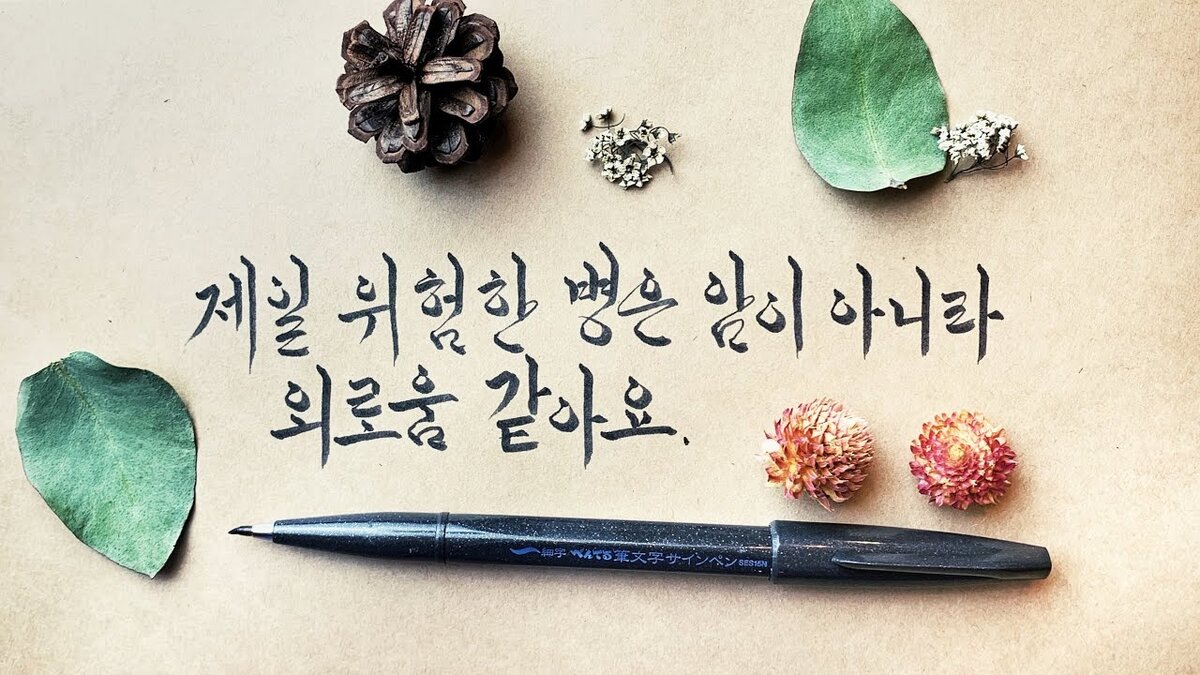 제일 위험한 병은 암이 아니라
외로움 같아요.
細字 ぺんてる筆文字サインペン SES15N